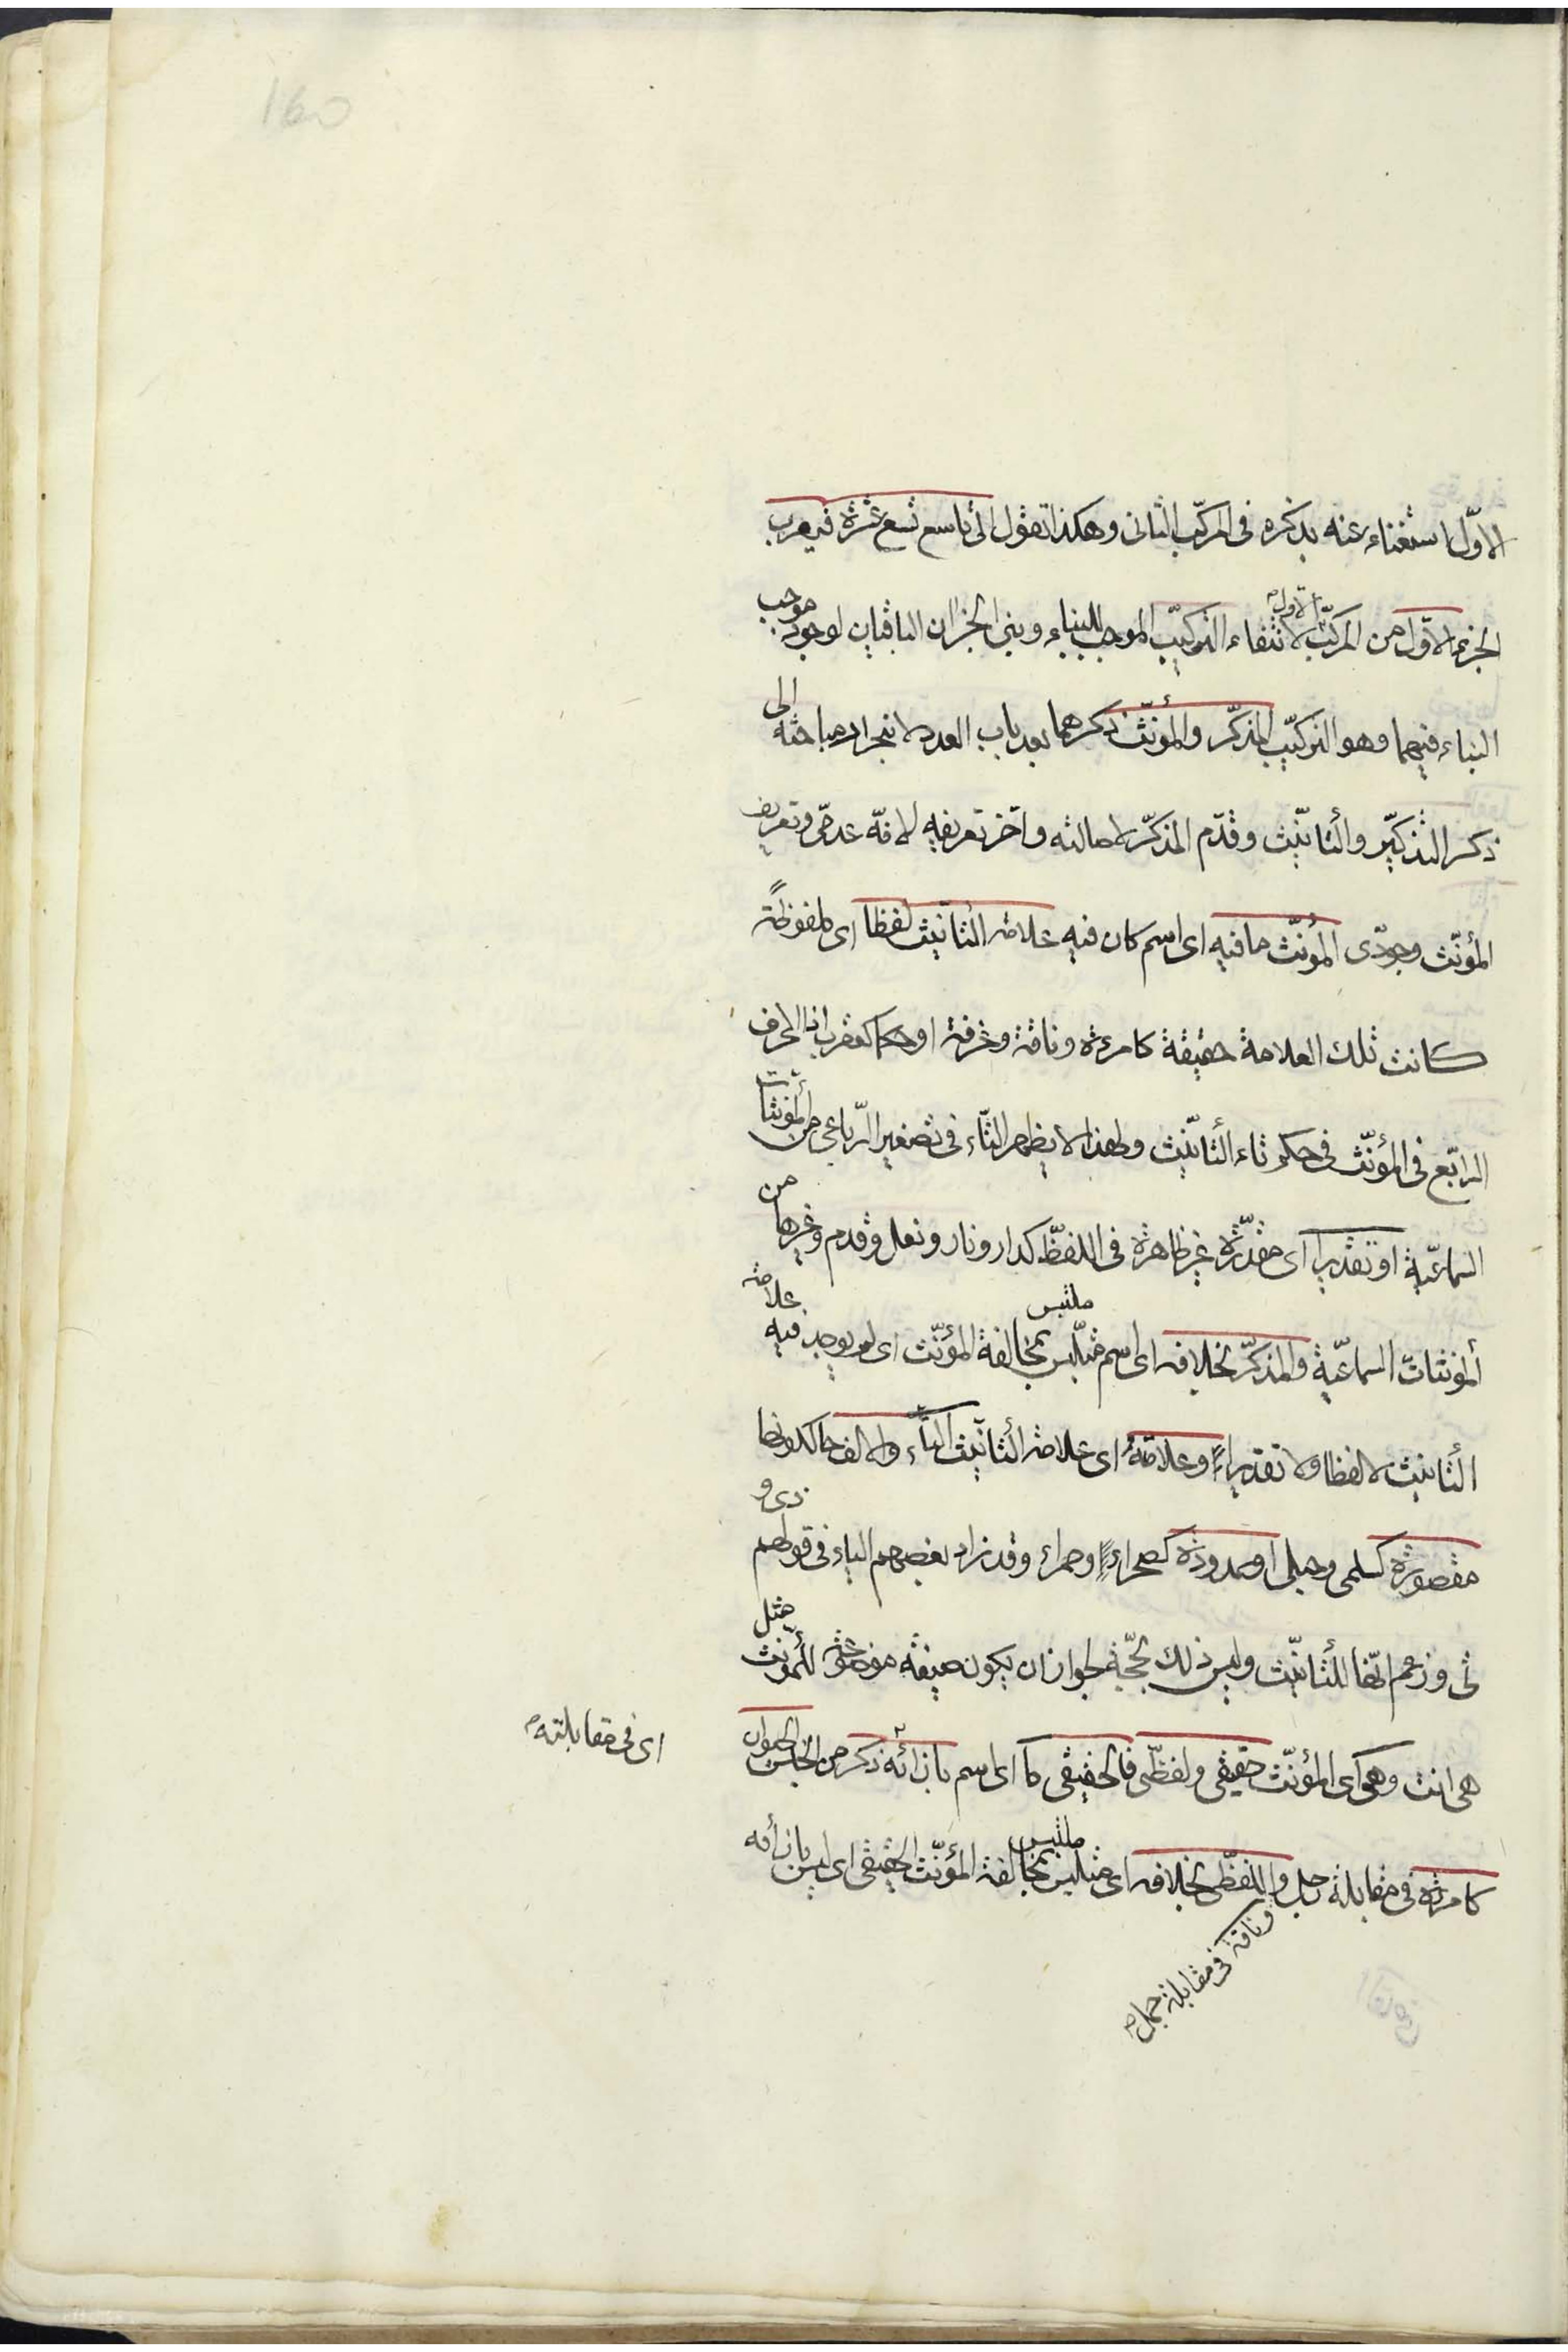 160
الاوّل استغناء عنه بذكره فى المركّب الثانى وهكذا تقول الى تاسع تسع عشرة فيعرب
الجزء الاوّل من المركّب الاول لانتفاء التركيب الموجب للبناء وبنى الجزان الباقيان لوجود موجب
البناء فيهما وهو التركيب المذكّر والمؤنّث ذكرهما بعد باب العدد لانجرار مباحثه الى
ذكر التذكير والتأنيث وقدّم المذكّر لاصالته واخّر تعريفه لانّه عدمّى وتعريف
المؤنّث وجودّى المؤنّث ما فيه اى اسم كان فيه علامة التأنيث لفظا اى ملفوظةً
كانت تلك العلامة حقيقة كامرءة وناقة وغرفة او حكما كعقرب اذ الحرف
الرابع فى المؤنّث فى حكم تاء التأنيث ولهذا لا يظهر التاء فى تصغير الرّباعى من المؤنثات
السماعيّة او تقديرا اى مقدّرة غير ظاهرة فى اللفظ كدار ونار ونعل وقدم وغيرها من
المؤنثات السماعيّة والمذكّر بخلافه اى اسم متلبّس ملتبس بمخالفة المؤنّث اى لم يوجد فيه علامة
التأنيث لا لفظا ولا تقديراً وعلامة اى علامة التأنيث التاء والالف حالكونها
مقصورة كسلمى وحبلى او ممدودة كصحراء وحمراء وقد زاد بعضهم الياء فى قولهم ذى و
تى وزعم انّها للتأنيث وليس ذلك بحجّة لجواز ان يكون صيغة موضوعة للمؤنث مثل
هى انت وهو اى المؤنّث حقيقى ولفظّى فالحقيقى ما اى اسم بازائه ذكر من الجنس الحيوان
اى فى مقابلته
كامرءة فى مقابلة رجل واللفظّى بخلافه اى متلبّس ملتبس بمخالفة المؤنّث الحقيقى اى ليس بازائه
وناقة فى مقابلة جمل